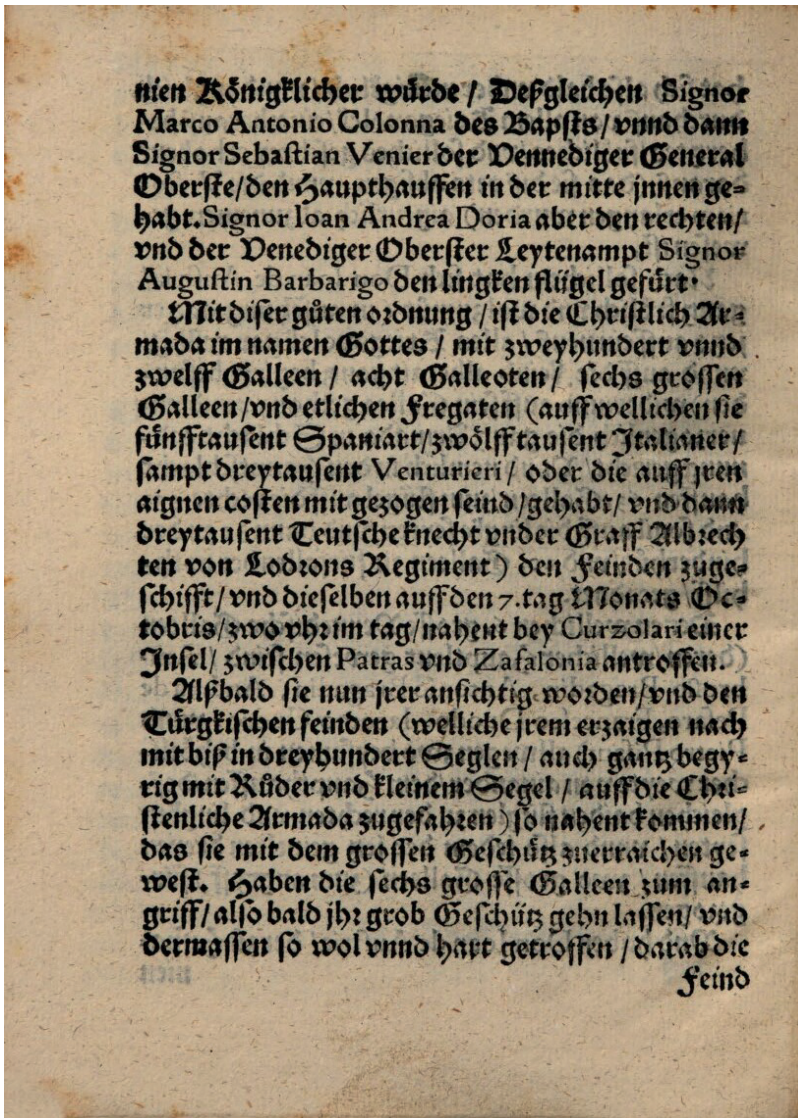 nien Königklicher würde / Deßgleichen Signor
Marco Antonio Colonna des Bapsts/ vnnd dann
Signor Sebastian Venier der Vennediger General
Oberste/den Haupthauffen in der mitte jnnen ge-
habt. Signor Ioan Andrea Doria aber den rechten/
vnd der Venediger Oberster Leytenampt Signor
Augustin Barbarigo den lingken flügel gefürt.
Mit diser gůten ordnung / ist die Christlich Ar-
mada im namen Gottes / mit zweyhundert vnnd
zwelff Galleen / acht Galleoten / sechs grossen
Galleen /vnd etlichen Fregaten (auff wellichen sie
fünfftausent Spaniart/zwölfftausent Italianer/
sampt dreytausent Venturieri / oder die auff jren
aignen costen mit gezogen seind /gehabt/ vnd dann
dreytausent Teutsche knecht vnder Graff Albrech
ten von Lodrons Regiment) den Feinden zuge-
schifft/ vnd dieselben auff den 7. tag Monats Oc-
tobris/zwo vhr im tag/nahent bey Curzolari einer
Insel/ zwischen Patras vnd Zafalonia antroffen.
Alßbald sie nun jrer ansichtig worden/vnd den
Türgkischen feinden (welliche jrem erzaigen nach
mit biß in dreyhundert Seglen / auch gantz begy-
rig mit Růder vnd kleinem Segel / auff die Chri-
stenliche Armada zugefahren) so nahent kommen/
das sie mit dem grossen Geschütz zuerraichen ge-
west. Haben die sechs grosse Galleen zum an-
griff/ also bald jhr grob Geschütz gehn lassen/ vnd
dermassen so wol vnnd hart getroffen / darab die
Feind